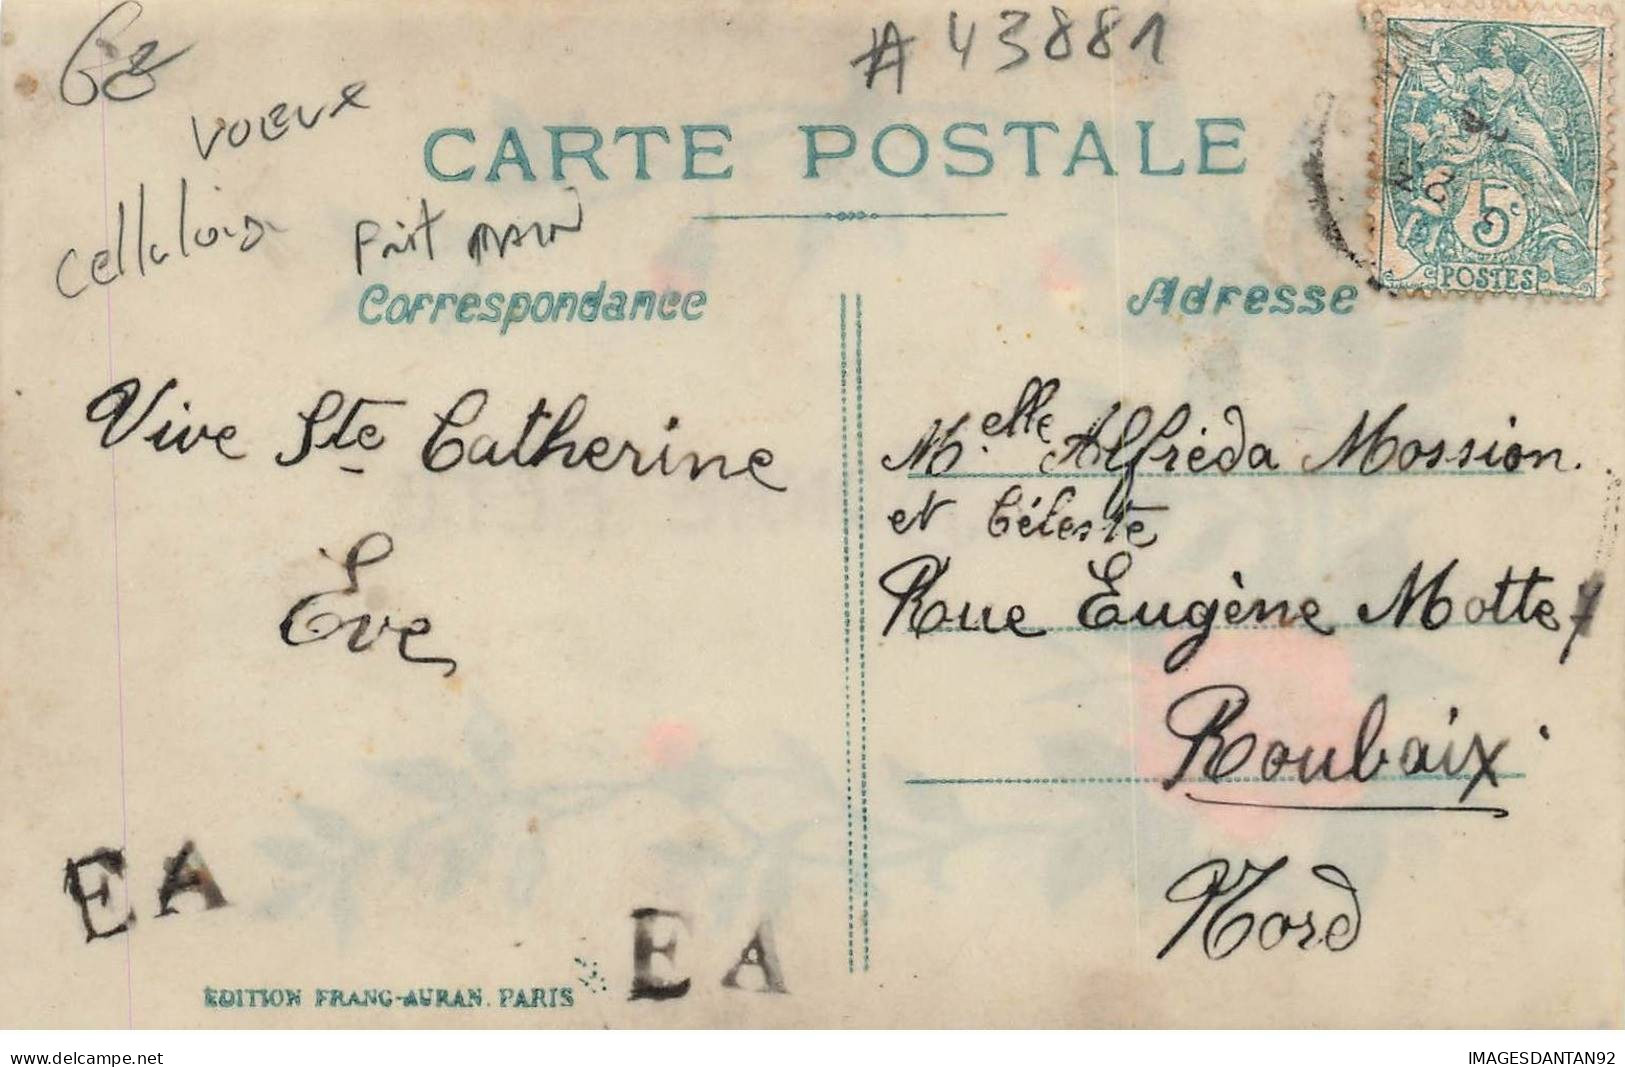 # 43881
voeux
CARTE POSTALE
celluloid
fait main
5c
POSTES
Correspondance
Adresse
Vive Ste Catherine
Eve
Melle Alfréda Mossion.
et Céleste
Rue Eugène Motte 7
Roubaix.
Nord
EA
EA
EDITION FRANC-AURAN. PARIS
www.delcampe.net
IMAGESDANTAN92